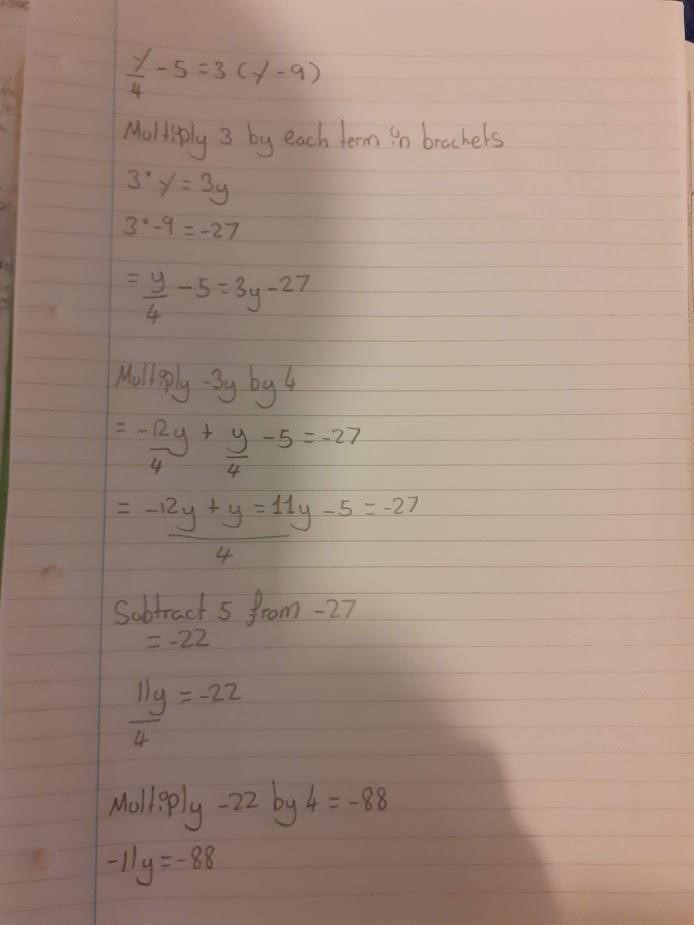 y/4 - 5 = 3 (y - 9)
Multiply 3 by each term in brackets
3 * y = 3y
3 * -9 = -27
= y/4 - 5 = 3y - 27
Multiply -3y by 4
= -12y/4 + y/4 - 5 = -27
= (-12y + y = 11y)/4 - 5 = -27
Subtract 5 from -27
= -22
11y/4 = -22
Multiply -22 by 4 = -88
-11y = -88